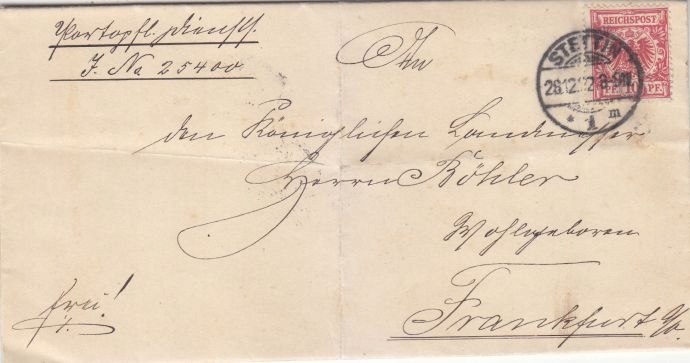 Portopfl. Dienstf.
J. No 25400
An
den Königlichen Landmesser
Herrn Böhler
Wohlgeboren
Frankfurt a/o.
frei!
REICHSPOST
PF 10 PF
STETTIN
28.12.92.8-9N.
* 1 m